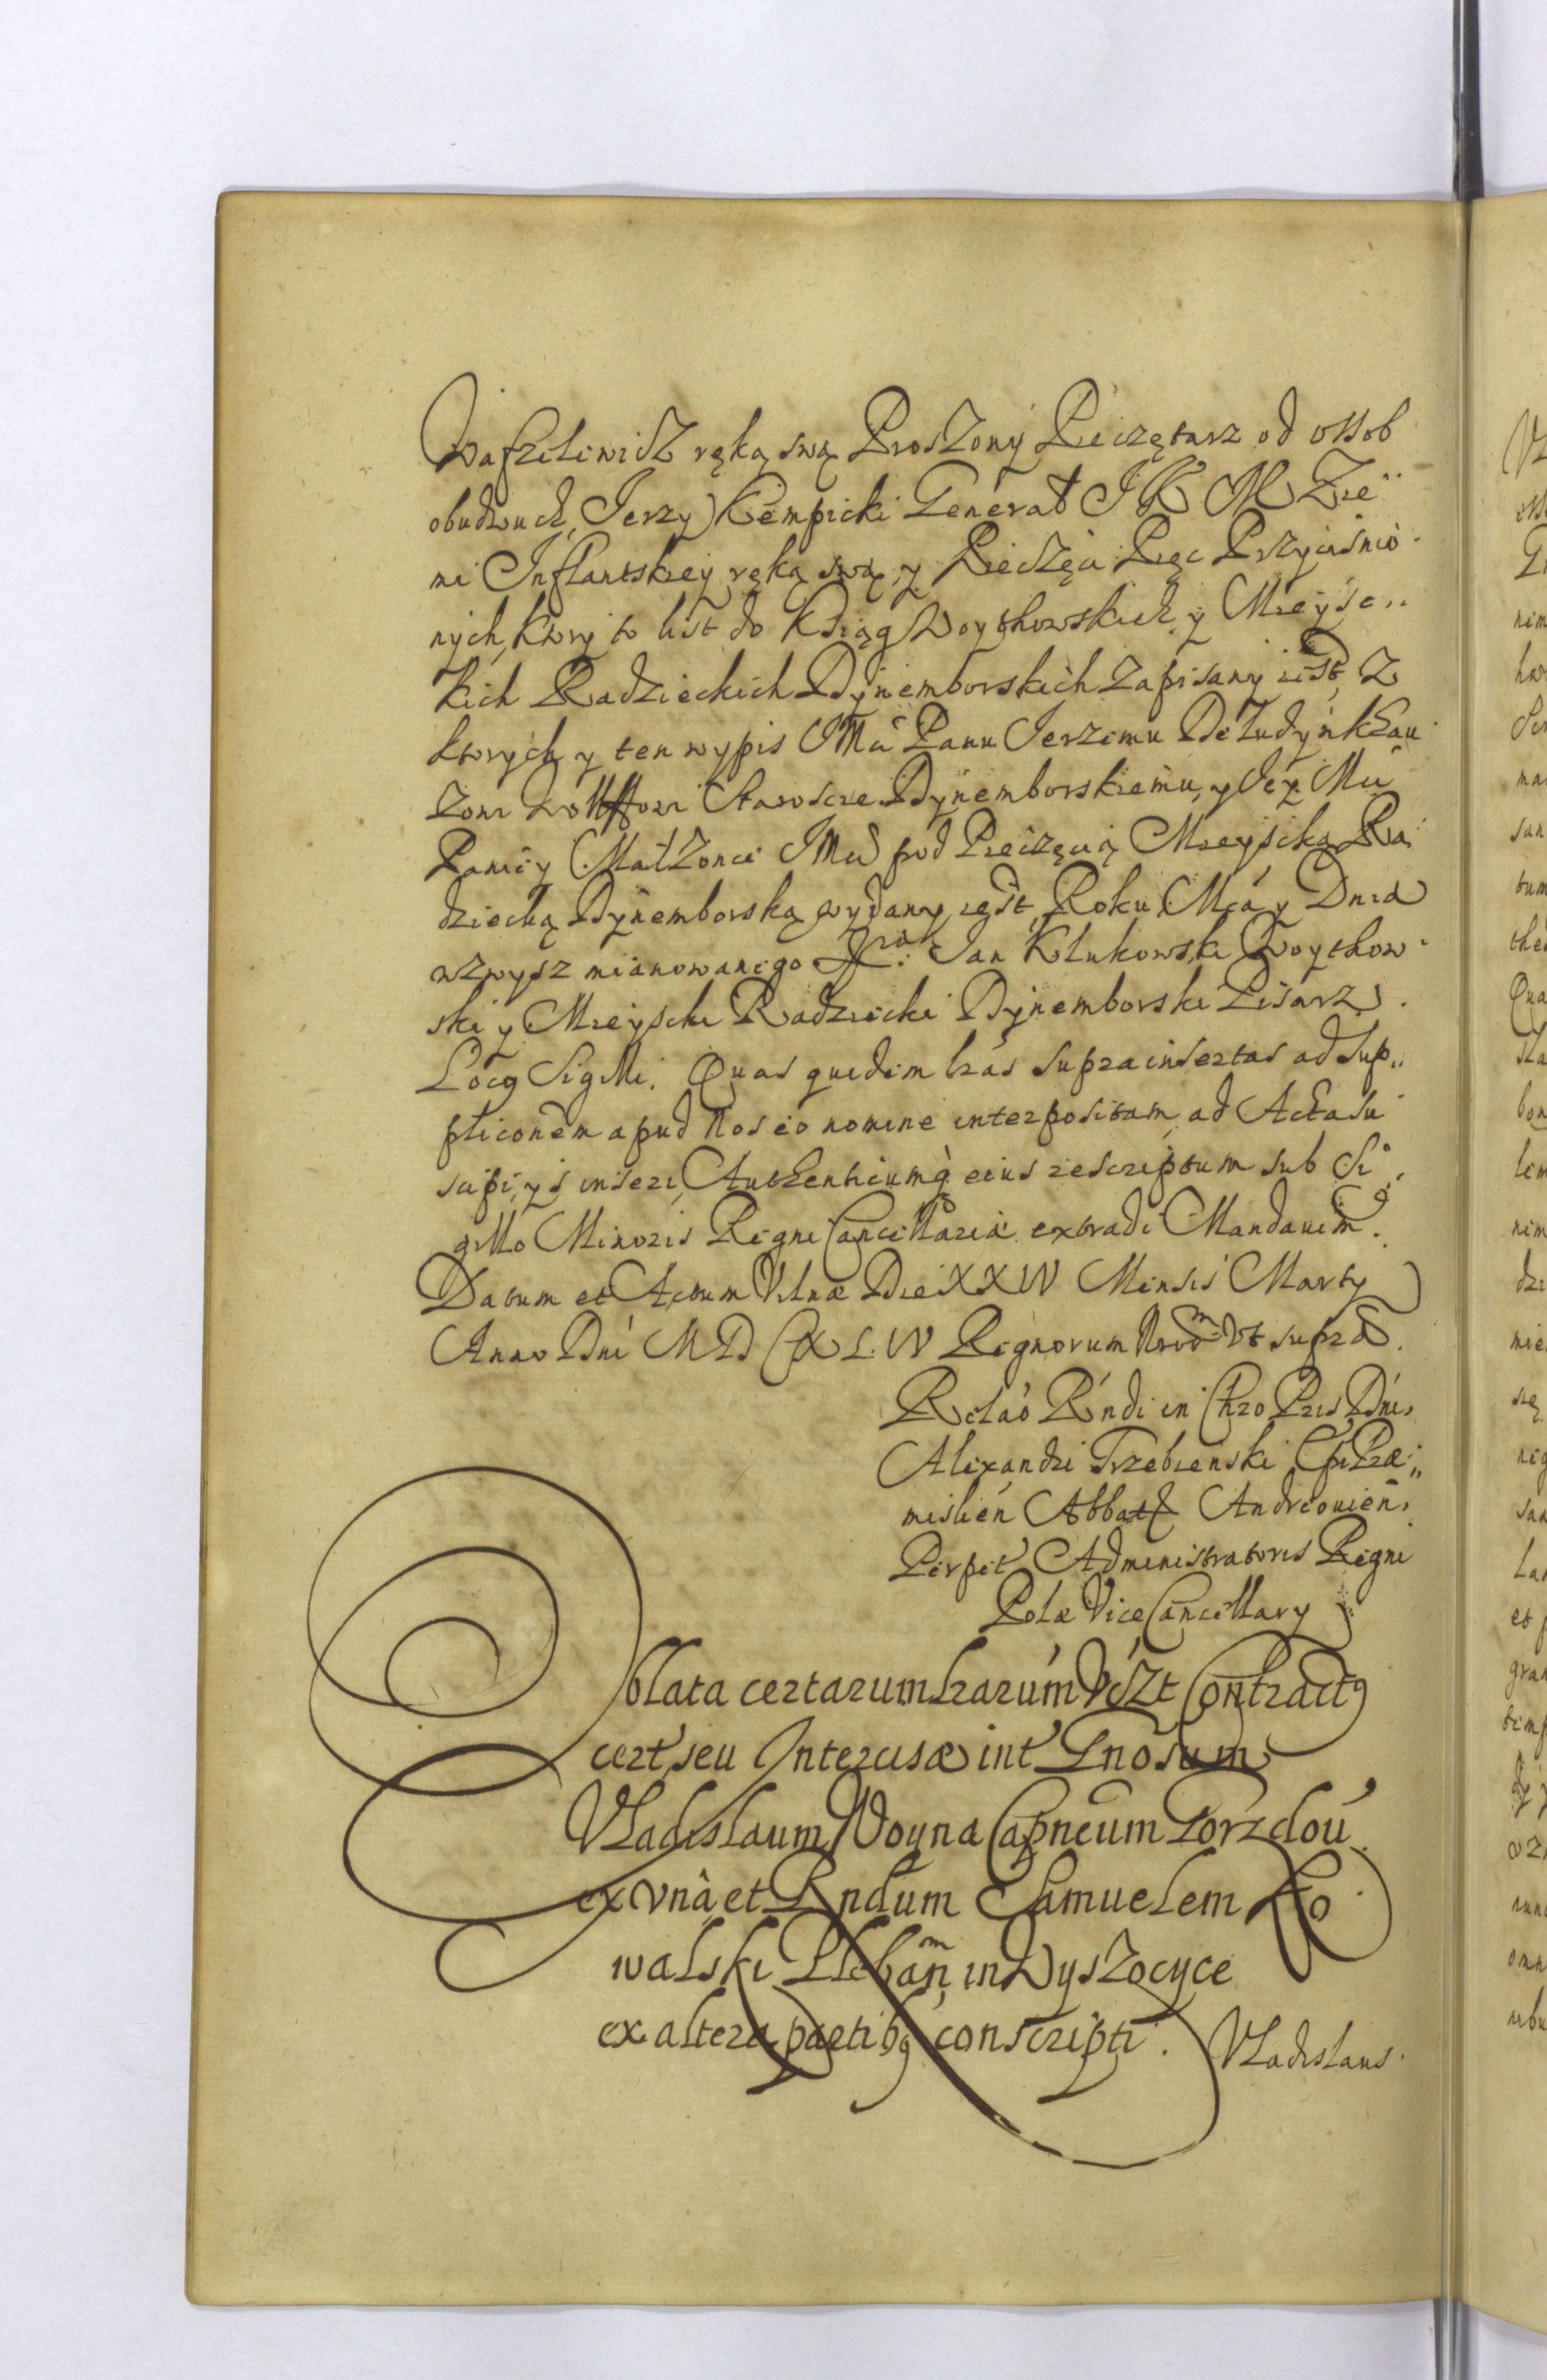 Waszilewicz ręką swą Proszony Pieczętarz od ossob
obudwuch, Jerzy Kempicki Generał J K M Zie
mi Inflantskiey ręką swą, y Pieczęci Pięc Przyciśnio
nych, ktory to list do Kśiąg Woythowskich y Mieyśc
kich Radzieckich Dynemborskich zapisany iest, z
ktorych y ten wypis JMci Panu Jerzemu De Ludynkhau
zowi Wolffowi Staroscie Dynemborskiemu, y Jey Mci
Paniey Małzonce JMci pod Pieczęcią Mieyscką Ra
dziecką Dynemborską wydany iest, Roku Mcá y Dnia
wzwysz mianowanego Jan Klukowski Woythow
ski y Mieyscki Radziecki Dynemborski Pisarz.
Locg Sigilli. Quas quidem lras supra insertas ad Sup
pliconem apud Nos eo nomine interpositam, ad Acta su
scipi, ys inseri, Authenticumq eius rescriptum sub Si
gillo Minoris Regni Cancellariæ extradi Mandauim9.
Datum et Actum Vilnæ Die XXIV Mensis Marty
Anno Dni M D C XL. IV Regnorum Nrorm Vt supra.
Relao Rndi in Chro Pris Dni,
Alexandri Trzebienski Epi Præ
mislien Abbatis Andreouien,
Perpet Administratoris Regni
Polæ Vice Cancellary
Oblata certarum lrarum Vdzt Contract9
cert, seu Intercisæ int Gnosum
Vladislaum Woyna Capneum Lorzdou
ex vnâ et Rndum Samuelem Ko
walski Plebanm in Wyszocyce
ex altera partib9 conscripti.
Vladislaus